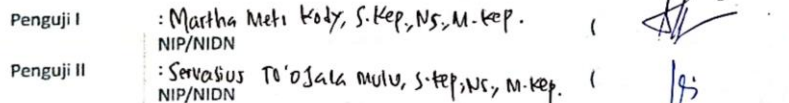 Penguji I : Martha Meti Kody, S.Kep.,Ns., M-Kep. (
NIP/NIDN
Penguji II : Servasius To'o Jala Mulu, S.Kep,Ns., M.Kep. (
NIP/NIDN